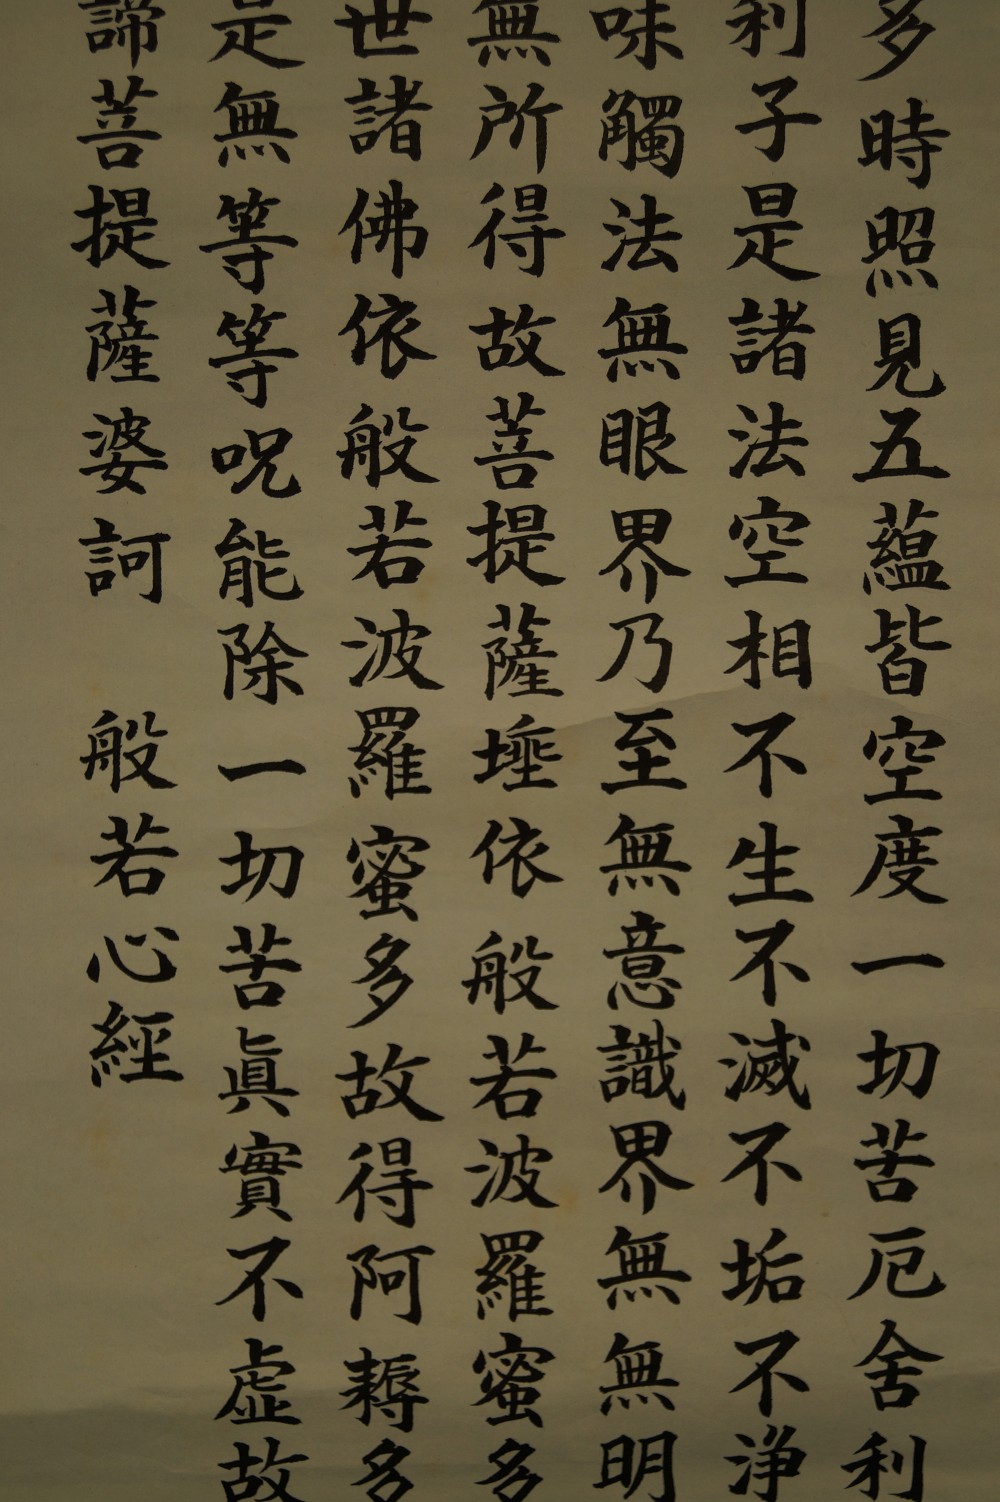 多時照見五蘊皆空度一切苦厄舍利
利子是諸法空相不生不滅不垢不浄
味觸法無眼界乃至無意識界無無明
無所得故菩提薩埵依般若波羅蜜多
世諸佛依般若波羅蜜多故得阿耨多
是無等等呪能除一切苦眞實不虛故
諦菩提薩婆訶 般若心經